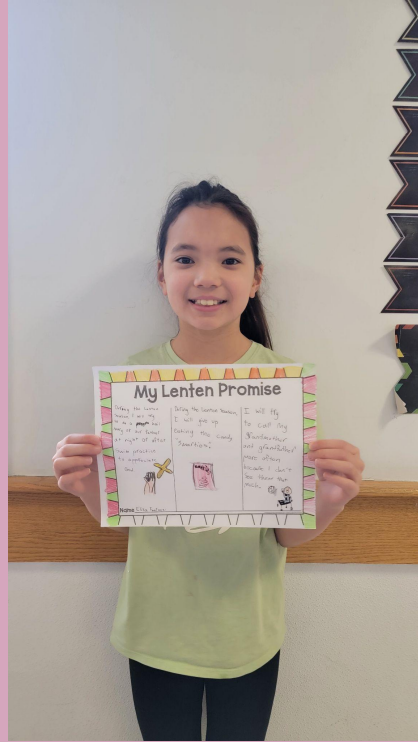 My Lenten Promise
During the Lenten
Season I will try
to do a Hail
Mary or Our Father
at night or after
to appreciate
God
During the Lenten Season,
I will give up
eating the candy
I will try
to call my
Grandmother
and grandfather
more often
because I don't
see them that
much.
Name